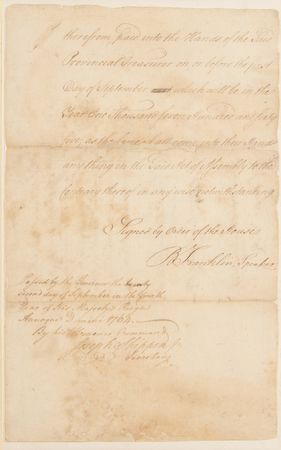 therefrom, paid into the Hands of the said
Provincial Treasurer on or before the first
Day of September which will be in the
Year One Thousand seven Hundred and sixty
five, as the same shall come into their Hands
any thing in the said Act of Assembly to the
contrary thereof in any wise notwithstanding
Signed by Order of the House
B Franklin, Speaker
Passed by the Governor the twenty
second day of September in the fourth
Year of His Majesty's Reign
Annoque Domini 1764.
By his Honour's Command
Joseph Shippen Jr
Secretary